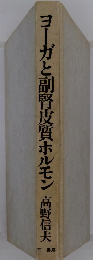 ヨーガと副腎皮質ホルモン
高野信夫